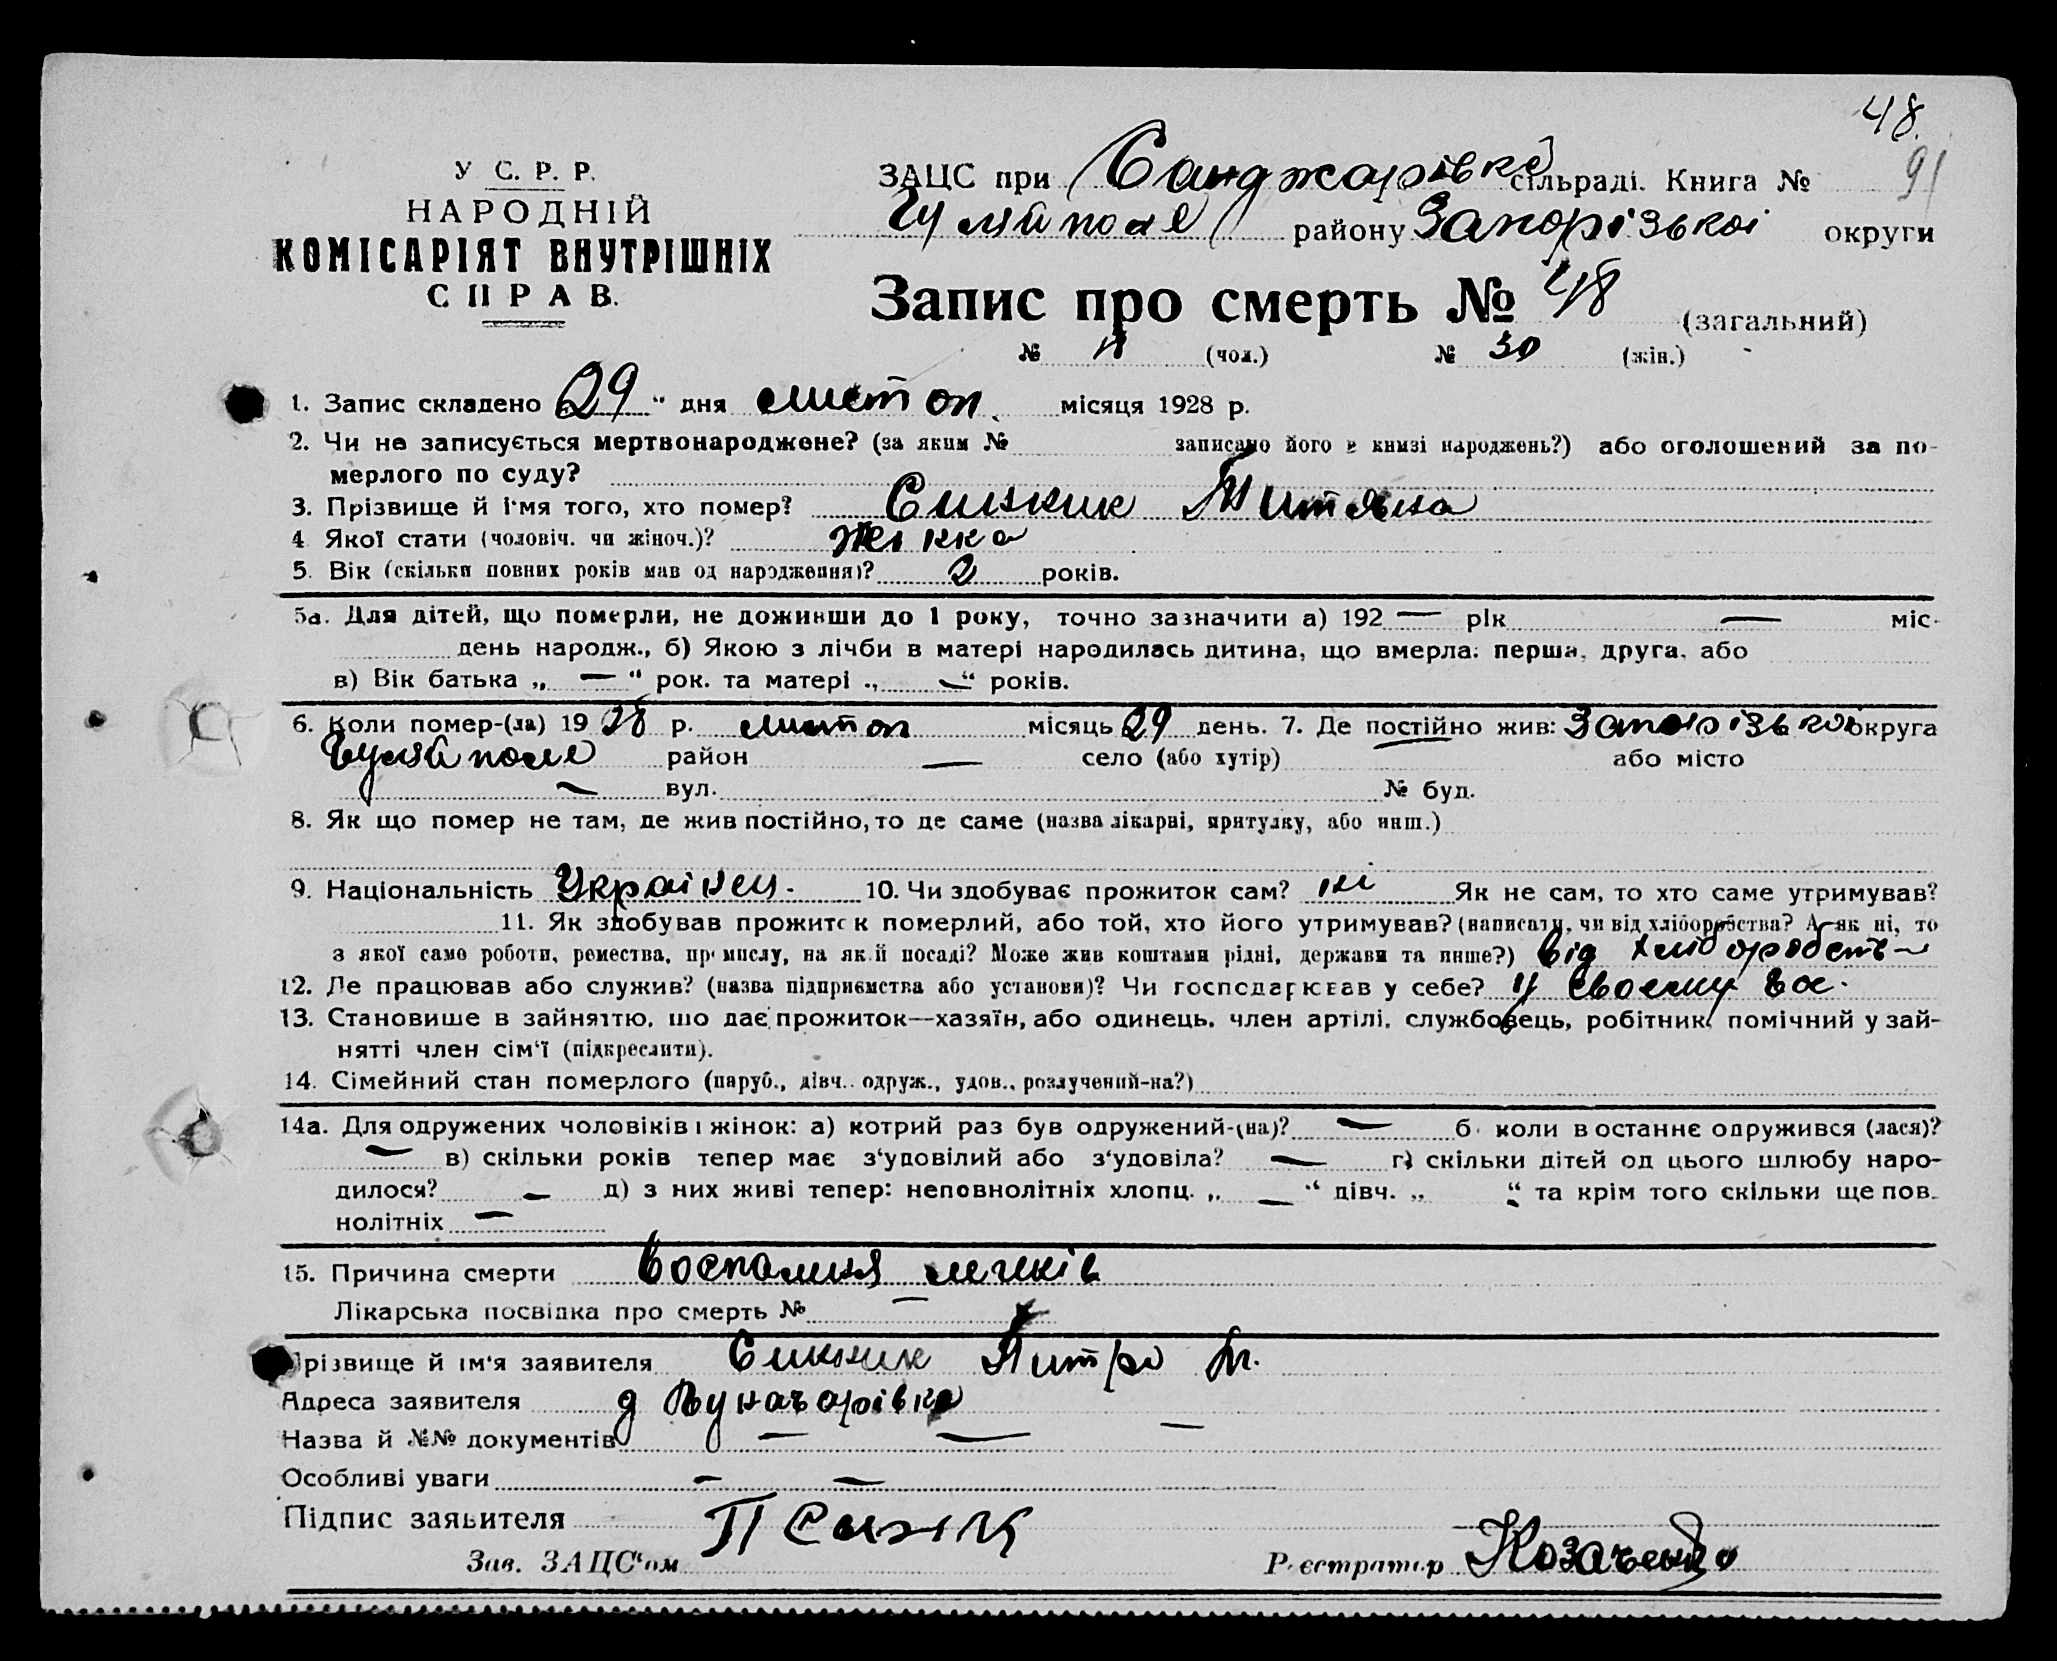 48.
91
У С. Р. Р.
НАРОДНІЙ
КОМІСАРІЯТ ВНУТРІШНІХ
СПРАВ.
ЗАЦС при Санджарівке сільраді. Книга №
Гуляйполе району Запорізької округи
Запис про смерть № 48 (загальний)
№ (чол.) № 30 (жін.)
1. Запис складено „29“ дня листоп. місяця 1928 р.
2. Чи не записується мертвонароджене? (за яким № записано його в книзі народжень?) або оголошений за по-
мерлого по суду?
3. Прізвище й ім'я того, хто помер?
4. Якої статі (чоловіч. чи жіноч.)? жінка
5. Вік (скільки повних років мав од народження)? 2 років.
5а. Для дітей, що померли, не доживши до 1 року, точно зазначити а) 192 — рік — міс.
день народж., б) Якою з лічби в матері народилась дитина, що вмерла: перша, друга, або
в) Вік батька „ — “ рок. та матері „ — “ років.
6. Коли помер-(ла) 1928 р. листоп місяць 29 день. 7. Де постійно жив: Запорізької округа
Гуляйполе район — село (або хутір) або місто
— вул. № буд.
8. Як що помер не там, де жив постійно, то де саме (назва лікарні, притулку, або инш.)
9. Національність Українец. 10. Чи здобуває прожиток сам? ні Як не сам, то хто саме утримував?
11. Як здобував прожиток померлий, або той, хто його утримував? (написати, чи від хліборобства? А як ні, то
з якої саме роботи, ремества, промислу, на якій посаді? Може жив коштами рідні, держави та инше?) від хлиборобств
12. Де працював або служив? (назва підприємства або установи)? Чи господарював у себе? у своему
13. Становище в зайняттю, що дає прожиток—хазяїн, або одинець, член артілі, службовець, робітник, помічний у зай-
нятті член сім'ї (підкреслити).
14. Сімейний стан померлого (паруб., дівч., одруж., удов., розлучений-на?)
14а. Для одружених чоловіків і жінок: а) котрий раз був одружений-(на)? — б) коли востаннє одружився (лася)?
— в) скільки років тепер має з'удовілий або з'удовіла? — г) скільки дітей од цього шлюбу наро-
дилося? — д) з них живі тепер: неповнолітніх хлопц. „ — “ дівч. „ “ та крім того скільки ще пов-
нолітніх —
15. Причина смерти воспалиня легків
Лікарська посвідка про смерть № —
Прізвище й ім'я заявителя
Адреса заявителя
Назва й №№ документів — — —
Особливі уваги — —
Підпис заявителя
Зав. ЗАЦС'ом Реєстратор Козаченко